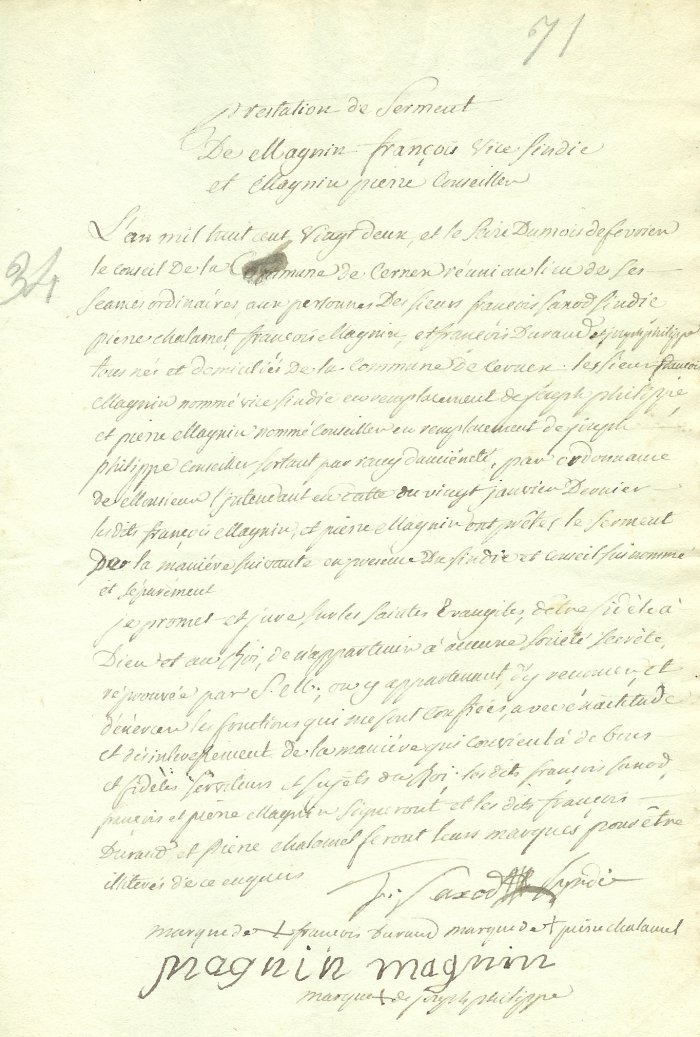 71
Prestation de Serment
De Magnin françois Vice Sindic
et Magnin pierre Conseiller
L'an mil huit cent Vingt deux, et le Seize Dumois defevrier
34
le Conseil De la Commune de Cernex réuni au lieu de Ses
Seances ordinaires, aux personnes Des Sieurs françois Saxod Sindic
pierre Chalamel, françois Magnin, et françois Durand et joseph philippe
tous nés et domiciliés De la Commune De Cernex. les Sieurs françois
Magnin nommé vice Sindic en remplacement de joseph philippe,
et pierre Magnin nommé Conseiller en remplacement de joseph
philippe Conseiller Sortant par d'anciéneté, par ordonnance
de Monsieur l'jntendant en datte du vingt janvier Dernier
lesdits françois Magnin, et pierre Magnin ont prêtés le Serment
De la maniére Suivante en présence Du Sindic et Conseil Susnommé
et Séparément
je promet et jure, Sur les Saintes Evangiles, d'être fidèle à
Dieu et au Roi, de n'appartenir à aucune Société Secrète,
réprouvée par S. M., ou y appartenant, d'y renoncer, et
d'éxercer les fonctions qui me sont Confiées, avec éxactitude
et désintéressement de la maniére qui convient à de bons
et fidèles Serviteurs et Sujets du Roi. les dits françois Saxod,
françois et pierre Magnin Signeront, et les dits françois
Durand, et pierre Chalamel feront leurs marques pour être
illitérés de ce enquis
fs. Saxod Syndic
marque de + francois Durand marque de + pierre chalamel
magnin magnin
marque + de joseph philippe